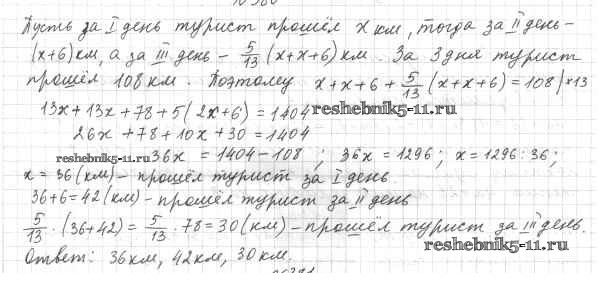 Пусть за I день турист прошёл x км, тогда за II день –
(x+6) км, а за III день – 5/13 (x+x+6) км. За 3 дня турист
прошёл 108 км. Поэтому x+x+6+ 5/13 (x+x+6) = 108 | ×13
13x+13x+78+5(2x+6) = 1404
reshebnik5-11.ru
26x+78+10x+30 = 1404
reshebnik5-11.ru
36x = 1404-108 ; 36x = 1296; x = 1296:36;
x = 36 (км) – прошёл турист за I день
36+6=42 (км) – прошёл турист за II день
5/13 · (36+42) = 5/13 · 78 = 30 (км) – прошёл турист за III день.
reshebnik5-11.ru
Ответ: 36 км, 42 км, 30 км.